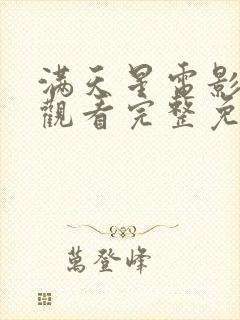 滿天星電影
觀看完整免
萬登峰